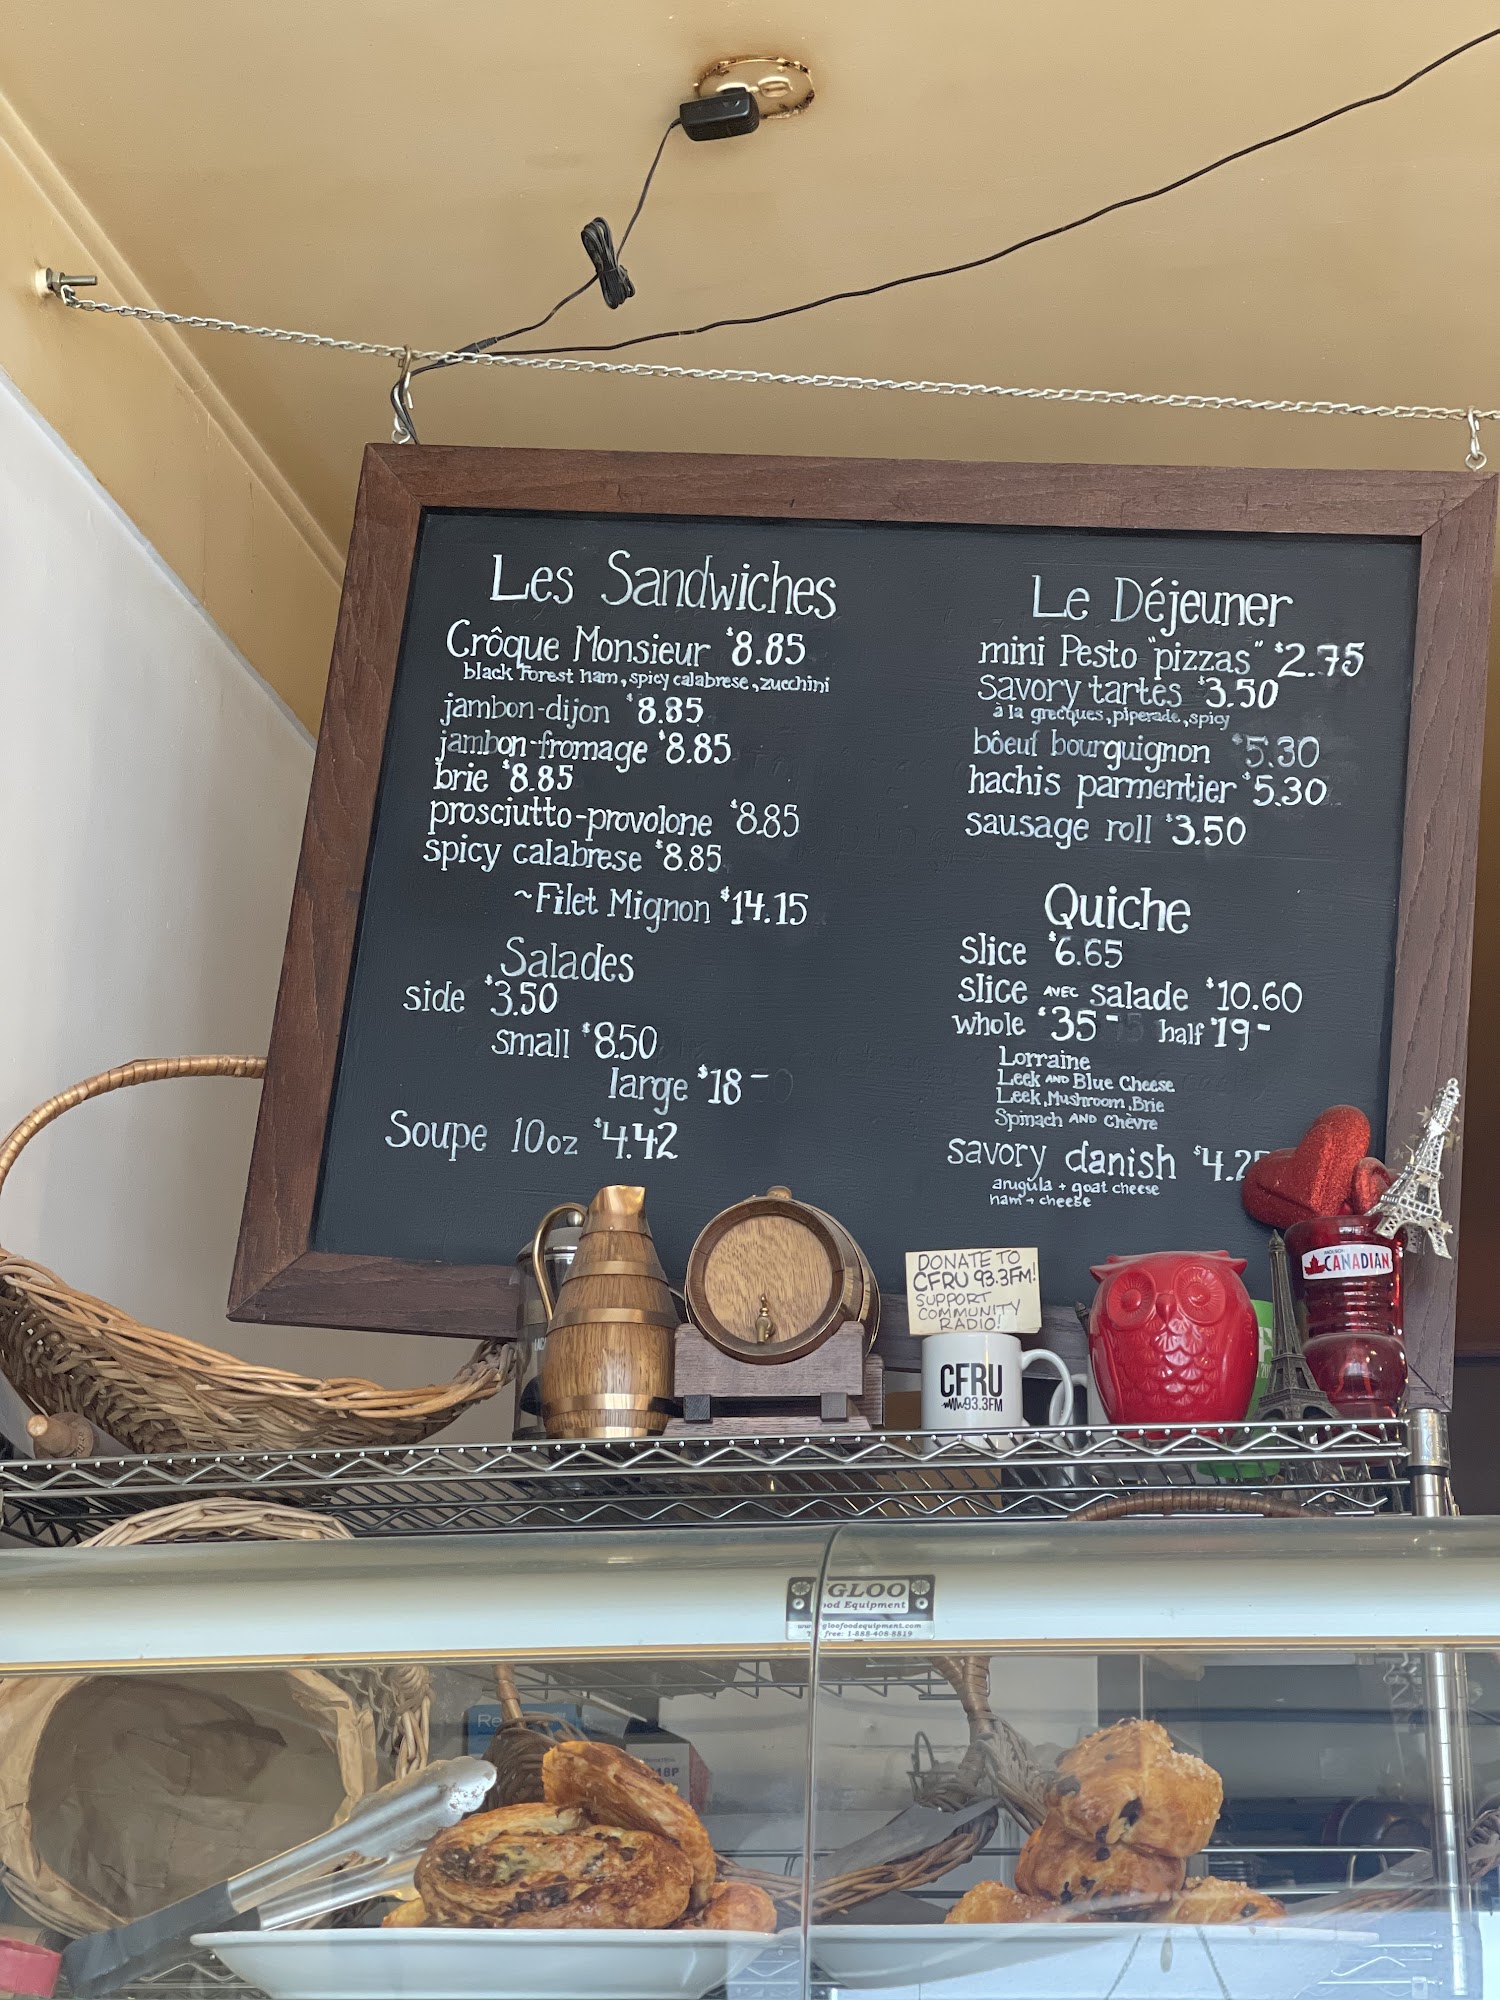 Les Sandwiches
Crôque Monsieur $8.85
black forest ham, spicy calabrese, zucchini
jambon-dijon $8.85
jambon-fromage $8.85
brie $8.85
prosciutto-provolone $8.85
spicy calabrese $8.85
~Filet Mignon $14.15
Salades
side $3.50
small $8.50
large $18-
Soupe 10oz $4.42
Le Déjeuner
mini Pesto "pizzas" $2.75
savory tartes $3.50
à la grecques, piperade, spicy
bôeuf bourguignon $5.30
hachis parmentier $5.30
sausage roll $3.50
Quiche
slice $6.65
slice AVEC salade $10.60
whole $35- half $19-
Lorraine
Leek AND Blue Cheese
Leek, Mushroom, Brie
Spinach AND Chèvre
savory danish $4.25
arugula + goat cheese
ham + cheese
DONATE TO
CFRU 93.3FM!
SUPPORT
COMMUNITY
RADIO!
CFRU
93.3FM
MOLSON
CANADIAN
IGLOO
Food Equipment
www.igloofoodequipment.com
Toll free: 1-888-408-8819